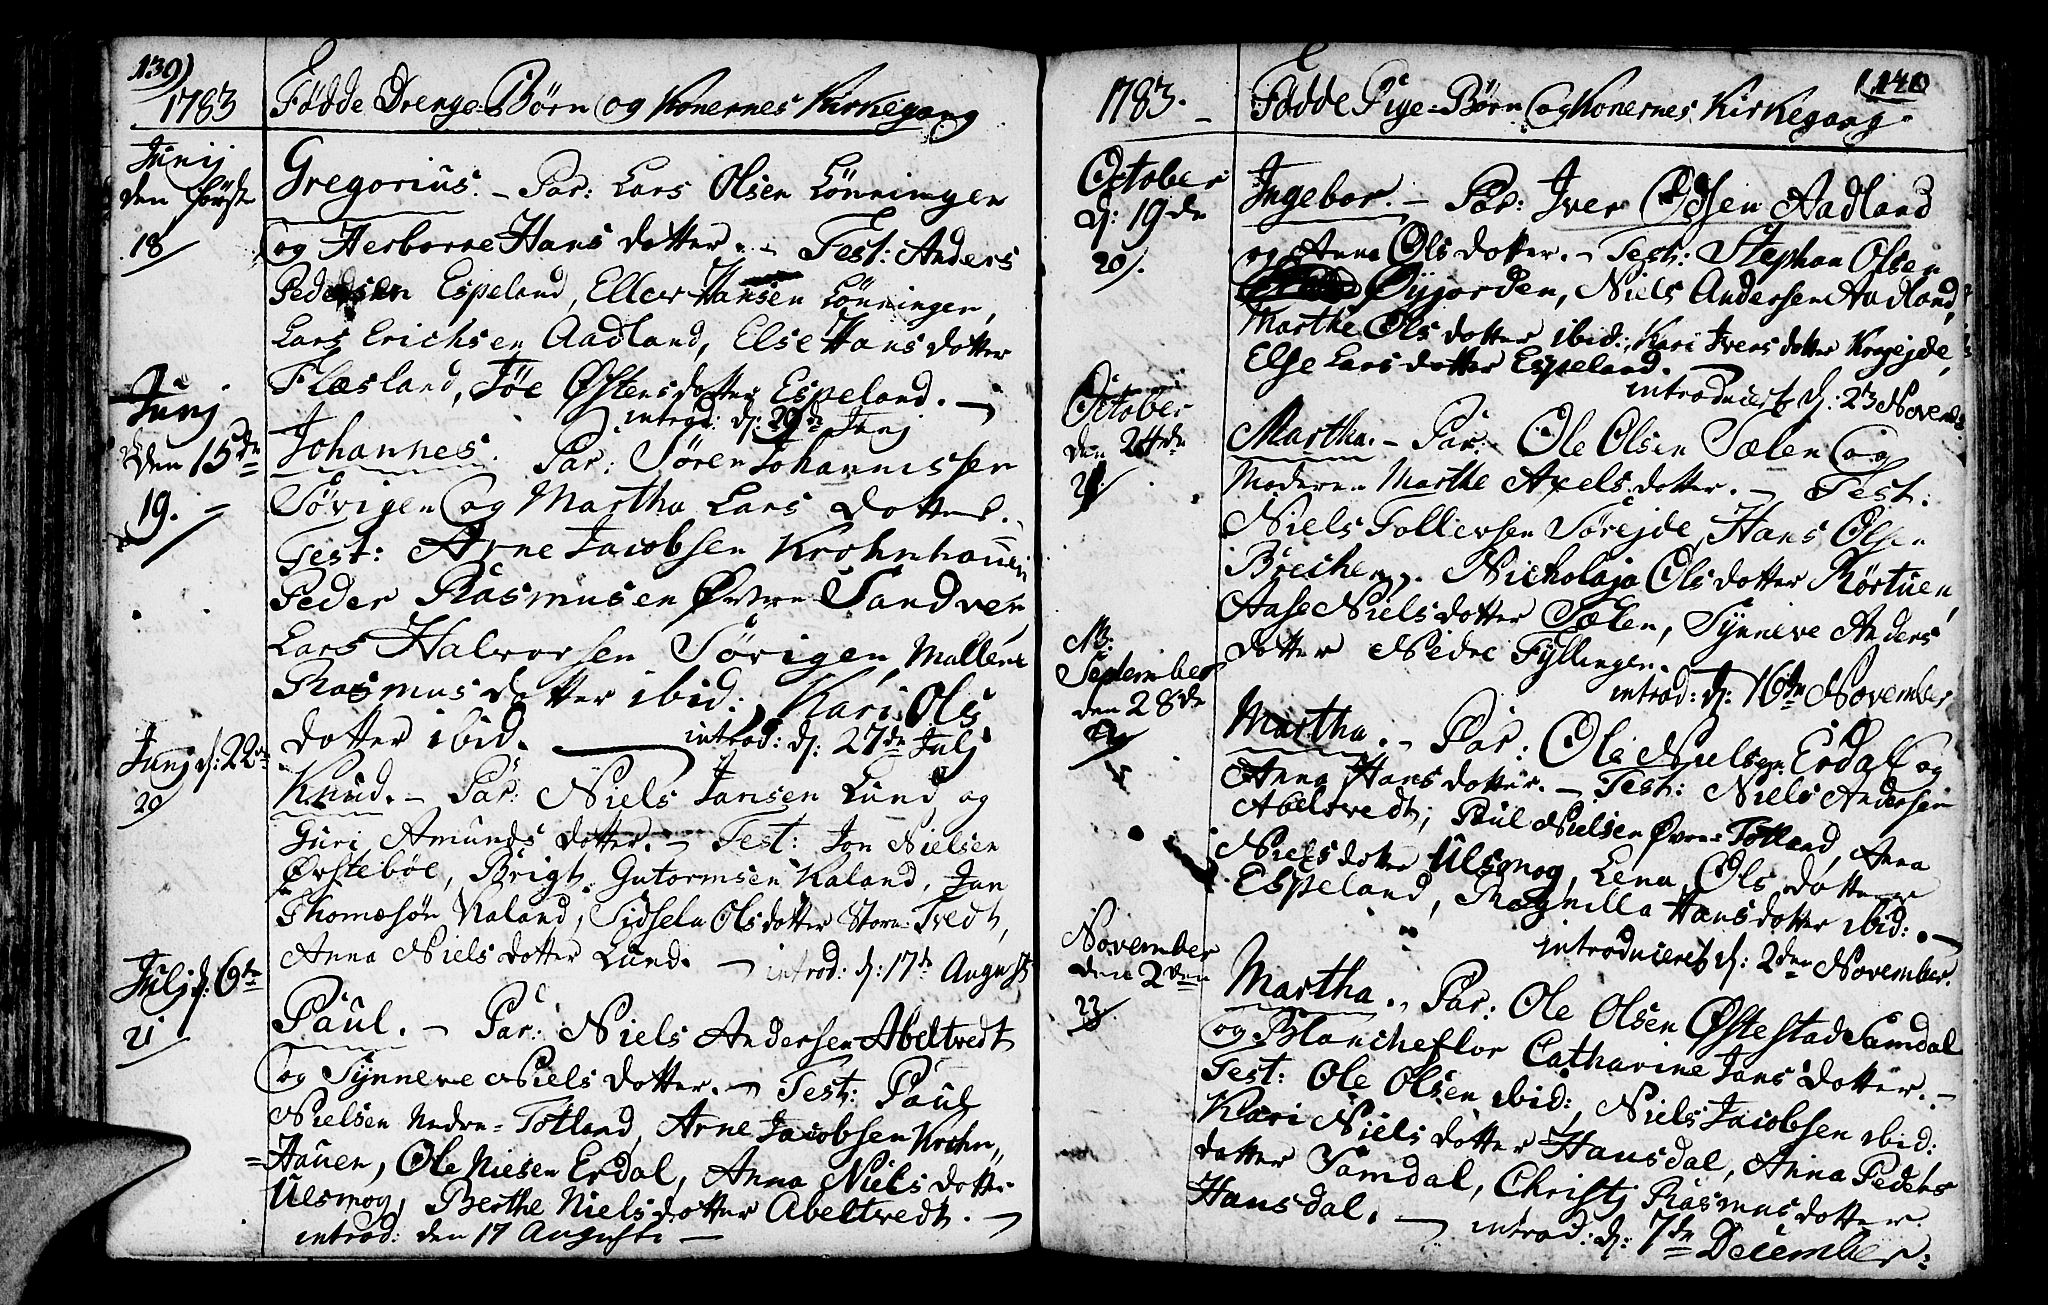 139)
1783 Fødde Drenge-Børn og Konernes Kirkegang
Junij
den første
18
Gregorius. – Par: Lars Olsen Lønningen
og Herborre Hans dotter. – Test: Anders
Pedersen Espeland, Ellev Hansen Lønningen,
Lars Erichsen Aadland, Else Hans dotter
Flæsland, Jøe Østens dotter Espeland. –
introd: d: 29de Junj
Junj
den 15de
19.
Johannes. Par: Søren Johannissen
Søvigen og Martha Lars dotter.
Test: Arne Jacobsen Krohnhauen
Peder Rasmusen Øvre Sandven,
Lars Halvorsen Søvigen, Mallene
Rasmus dotter ibid: Kari Ols
dotter ibid. — introd: d: 27de Julj
Junj d: 22de
20
Knud. – Par: Niels Jansen Lund og
Guri Amunds dotter. – Test: Jon Nielsen
Ørstebøe, Brigt Gutormsen Kaland, Jan
Thomæsøn Kaland, Sidsela Ols dotter Store-Tvedt,
Anna Niels dotter Lund. – introd: d: 17de Augusti
Julj d: 6te
21
Paul. – Par: Niels Andersen Abeltvedt
og Synneve Niels dotter. – Test: Paul
Nielsen Nedre-Totland, Arne Jacobsen Krohn
Hauen, Ole Nielsen Erdal, Anna Niels dotter
Ulsmog, Berthe Niels dotter Abeltvedt. –
introd: den 17 Augusti –
(140
1783. – Fødde Pige-Børn og Konernes Kirkegang.
October
d: 19de
20.
Ingebor. – Par: Iver Olsen Aadland
og Anna Ols dotter. – Test: Stephan Olsen
Øyjorden, Niels Andersen Aadland,
Marthe Ols dotter ibid:, Kari Ivers dotter Krogejde,
Else Lars dotter Espeland. –
introduceret d: 23 Novemb
October
den 24de
21
Martha. – Par: Ole Olsen Sælen og
Moderen Marthe Axels dotter. – Test:
Niels Tollevsen Sørejde, Hans Olsen
Brecken. Nicholaja Ols dotter Rørtuen,
Aase Niels dotter Sælen, Synneve Anders
dotter Nedre Fyllingen.
introd: d: 16de November
NB:
September
den 28de
22
Martha. – Par: Ole Nielsen Erdal og
Anna Hans dotter. – Test: Niels Andersen
Abeltvedt, Paul Nielsen Øvre-Totland, Anna
Niels dotter Ulsmog, Lena Ols dotter
Espeland, Ragnilla Hans dotter ibid:. –
introduceret d: 2den November.
November
den 2den
23
Martha. – Par: Ole Olsen Østestad Samdal
og Blancheflor Catharine Jans dotter. –
Test: Ole Olsen ibid:, Niels Jacobsen ibid:
Kari Niels dotter Hansdal, Anna Peders
dotter Samdal, Christj Rasmus dotter
Hansdal. – introd: d: 7de December.